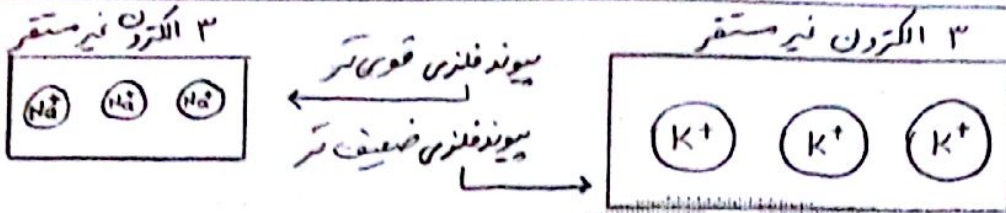 ۳ الکترون غیر مستقر
Na+ Na+ Na+
پیوند فلزی قوی تر
پیوند فلزی ضعیف تر
۳ الکترون غیر مستقر
K+ K+ K+